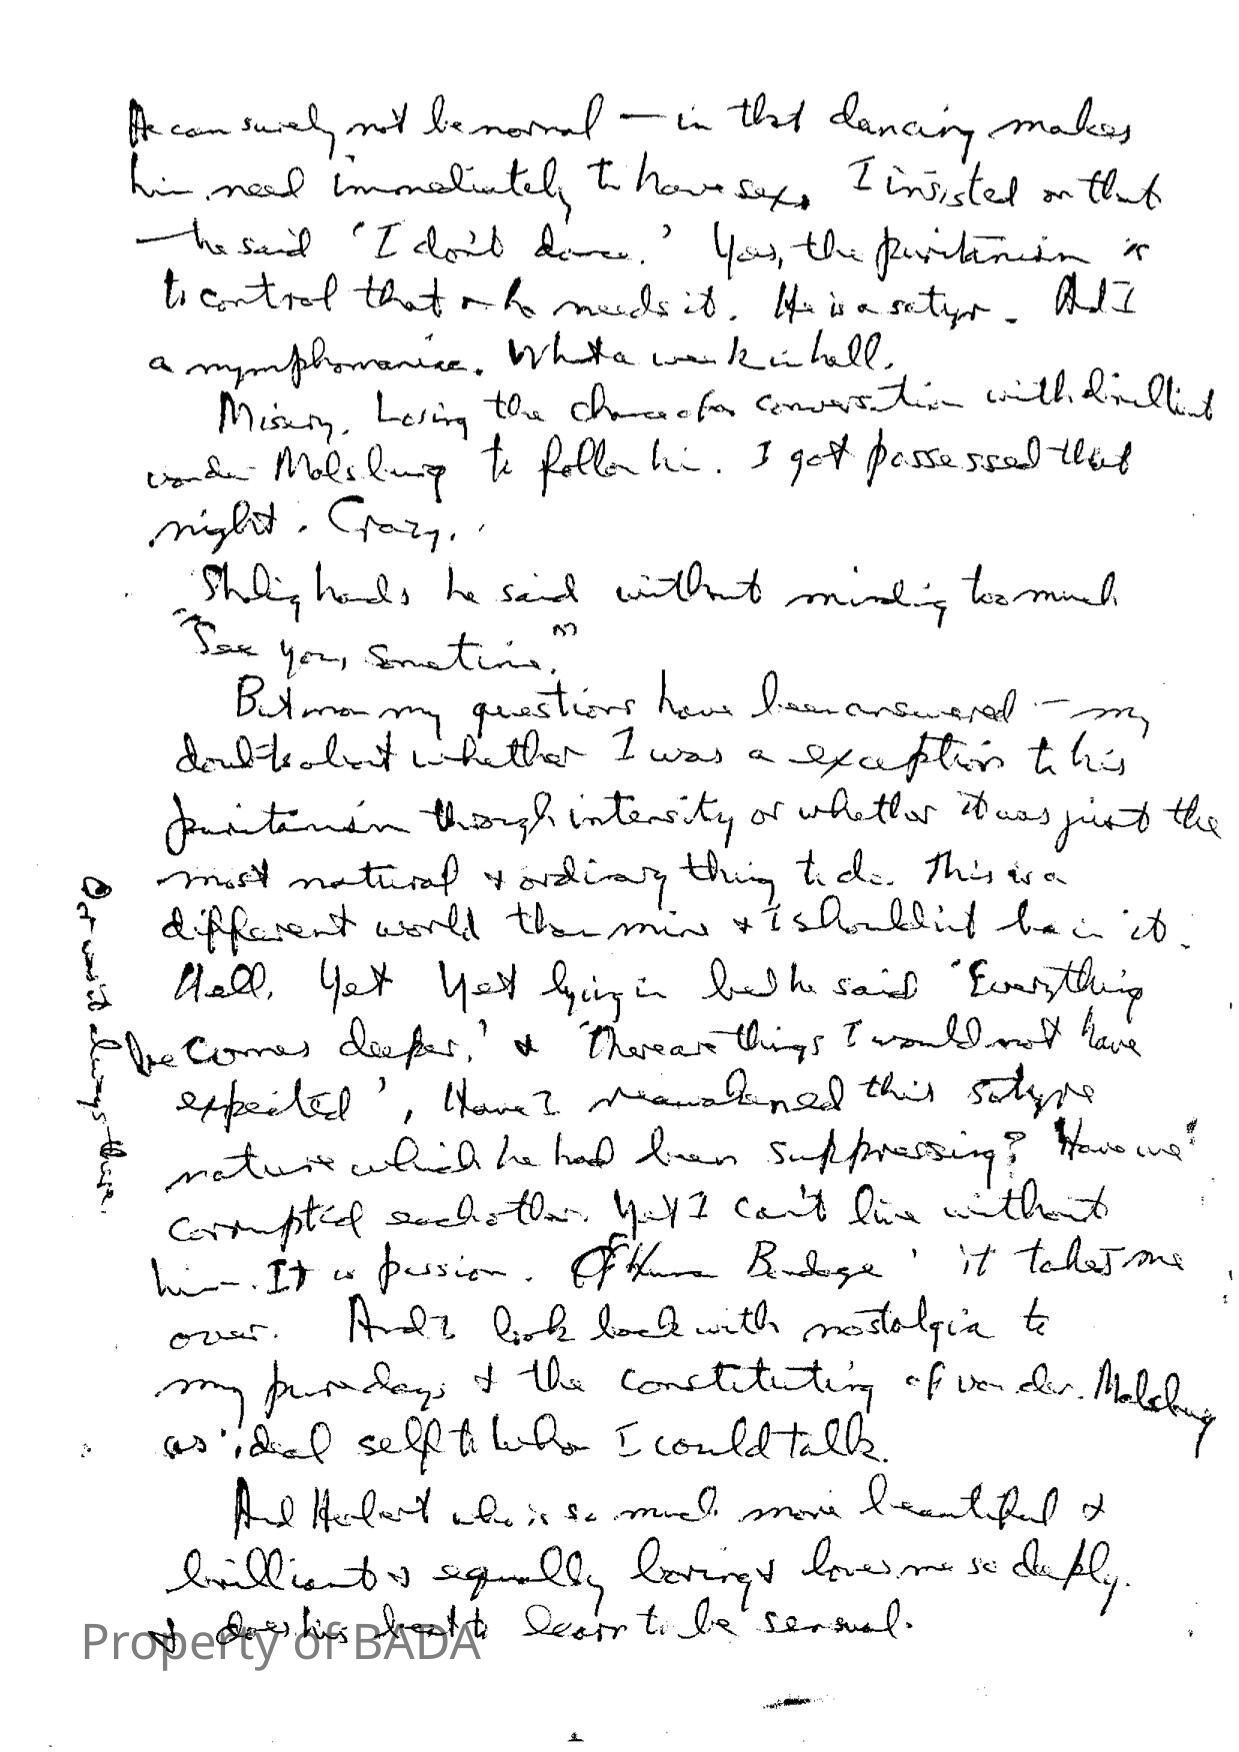 He can surely not be normal — in that dancing makes
him need immediately to have sex. I insisted on that
— he said 'I don't dance.' Yes, the puritanism is
to control that & he needs it. He is a satyr. And I
a nymphomaniac. What a week in hell.
Misery. Losing the chance for conversation with brilliant
van der Malsburg to follow him. I got possessed that
night. Crazy.
Shaking hands he said without minding too much
"See you, sometime."
But now my questions have been answered — my
doubts about whether I was a exception to his
puritanism through intensity or whether it was just the
most natural & ordinary thing to do. This is a
different world than mine & I shouldn't be in it.
Hell. Yet Yet lying in bed he said 'Everything
becomes deeper,' & 'There are things I would not have
expected', Have I reawakened this satyre
nature which he had been suppressing? Have we
corrupted each other. Yet I can't live without
him. It is passion. 'Of Human Bondage' it takes me
over. And I look back with nostalgia to
my pure days & the constituting of van der Malsburg
as ideal self to whom I could talk.
And Herbert who is so much more beautiful &
brilliant & equally loving & loves me so deeply.
& does his best to learn to be sensual.
Or was it always there.
Property of BADA